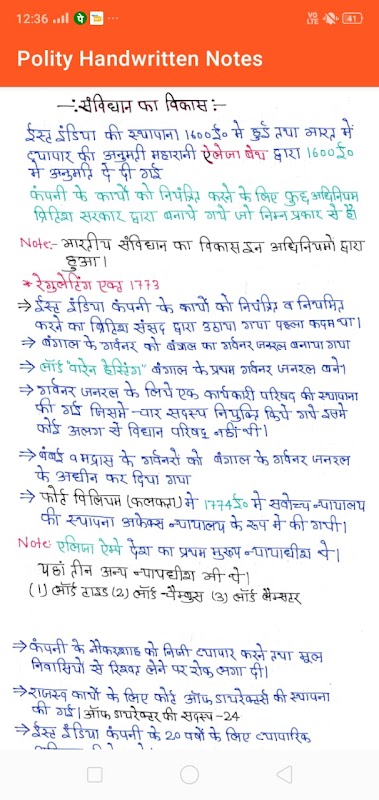 12:36
VO LTE 41
Polity Handwritten Notes
—:संविधान का विकास:—
ईस्ट इंडिया की स्थापना 1600ई० में हुई तथा भारत में
व्यापार की अनुमती महारानी ऐलेजा बेथ द्वारा 1600ई०
में अनुमति दे दी गई
कंपनी के कार्यो को नियंत्रित करने के लिए कुछ अधिनियम
ब्रिटिश सरकार द्वारा बनाये गये जो निम्न प्रकार से है।
Note:- भारतीय संविधान का विकास इन अधिनियमों द्वारा
हुआ।
* रेगुलेटिंग एक्ट 1773
⇒ ईस्ट इंडिया कंपनी के कार्यो को नियंत्रित व नियमित
करने का ब्रिटिश संसद द्वारा उठाया गया पहला कदम था।
⇒ बंगाल के गर्वनर को बंगाल का गर्वनर जनरल बनाया गया
⇒ लॉर्ड "वारेन हेस्टिंग" बंगाल के प्रथम गर्वनर जनरल बने।
⇒ गर्वनर जनरल के लिये एक कार्यकारी परिषद की स्थापना
की गई जिसमे चार सदस्य नियुक्ति किये गये इसमे
कोई अलग से विधान परिषद् नहीं थी।
⇒ बंबई व मद्रास के गर्वनरों को बंगाल के गर्वनर जनरल
के अधीन कर दिया गया
⇒ फोर्ट विलियम (कलकत्ता) में 1774ई० में सर्वोच्च न्यायालय
की स्थापना अकेक्स न्यायालय के रूप में की गयी।
Note: एलिजा ऐम्पे देश का प्रथम मुख्य न्यायाधीश थे।
यहां तीन अन्य न्यायधीश भी थे।
(1) लॉर्ड हाइड (2) लॉर्ड चैम्बुस (3) लॉर्ड लैमस्टर
⇒ कंपनी के नौकरशाह को निजी व्यापार करने तथा मूल
निवासियों से रिश्वत लेने पर रोक लगा दी।
⇒ राजस्व कार्यो के लिए कोर्ट ऑफ डायरेक्टर्स की स्थापना
की गई। ऑफ डायरेक्टर की सदस्य - 24
⇒ ईस्ट इंडिया कंपनी के 20 वर्षो के लिए व्यापारिक